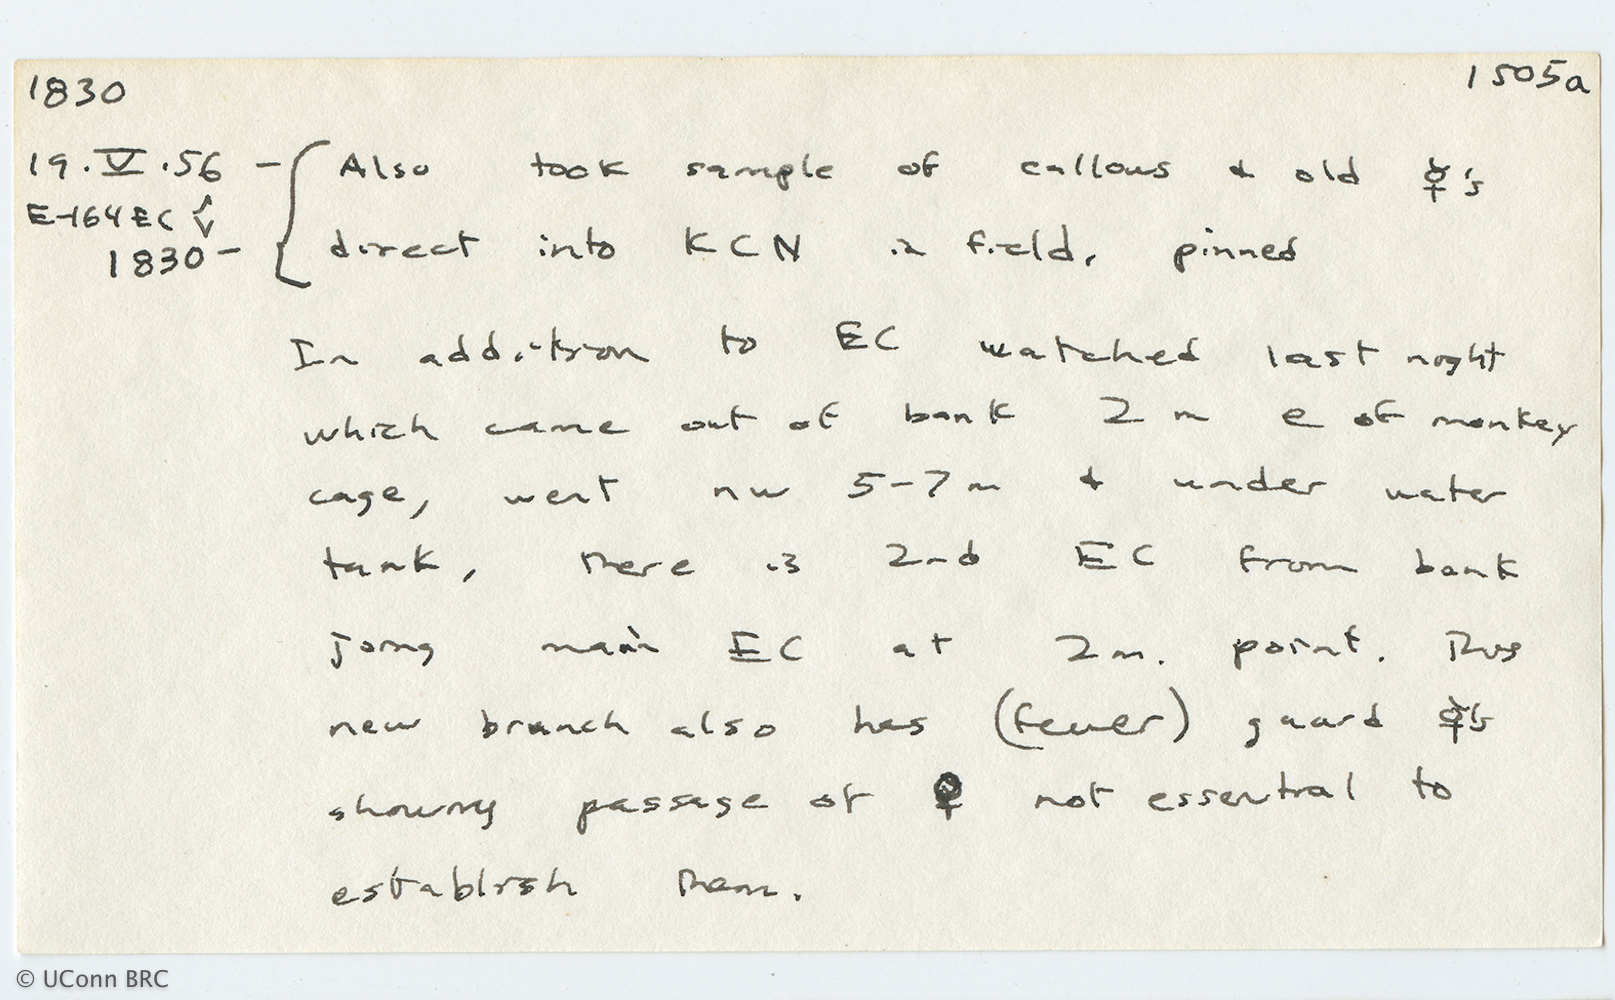 1830
1505a
19.V.56 - Also took sample of callows & old ☿'s
E-164 EC
1830 - direct into KCN in field, pinned
In addition to EC watched last night
which came out of bank 2 m e of monkey
cage, went nw 5-7 m & under water
tank, there is 2nd EC from bank
joing main EC at 2 m. point. This
new branch also has (fewer) guard ☿'s
showing passage of ♀ not essential to
establish them.
© UConn BRC